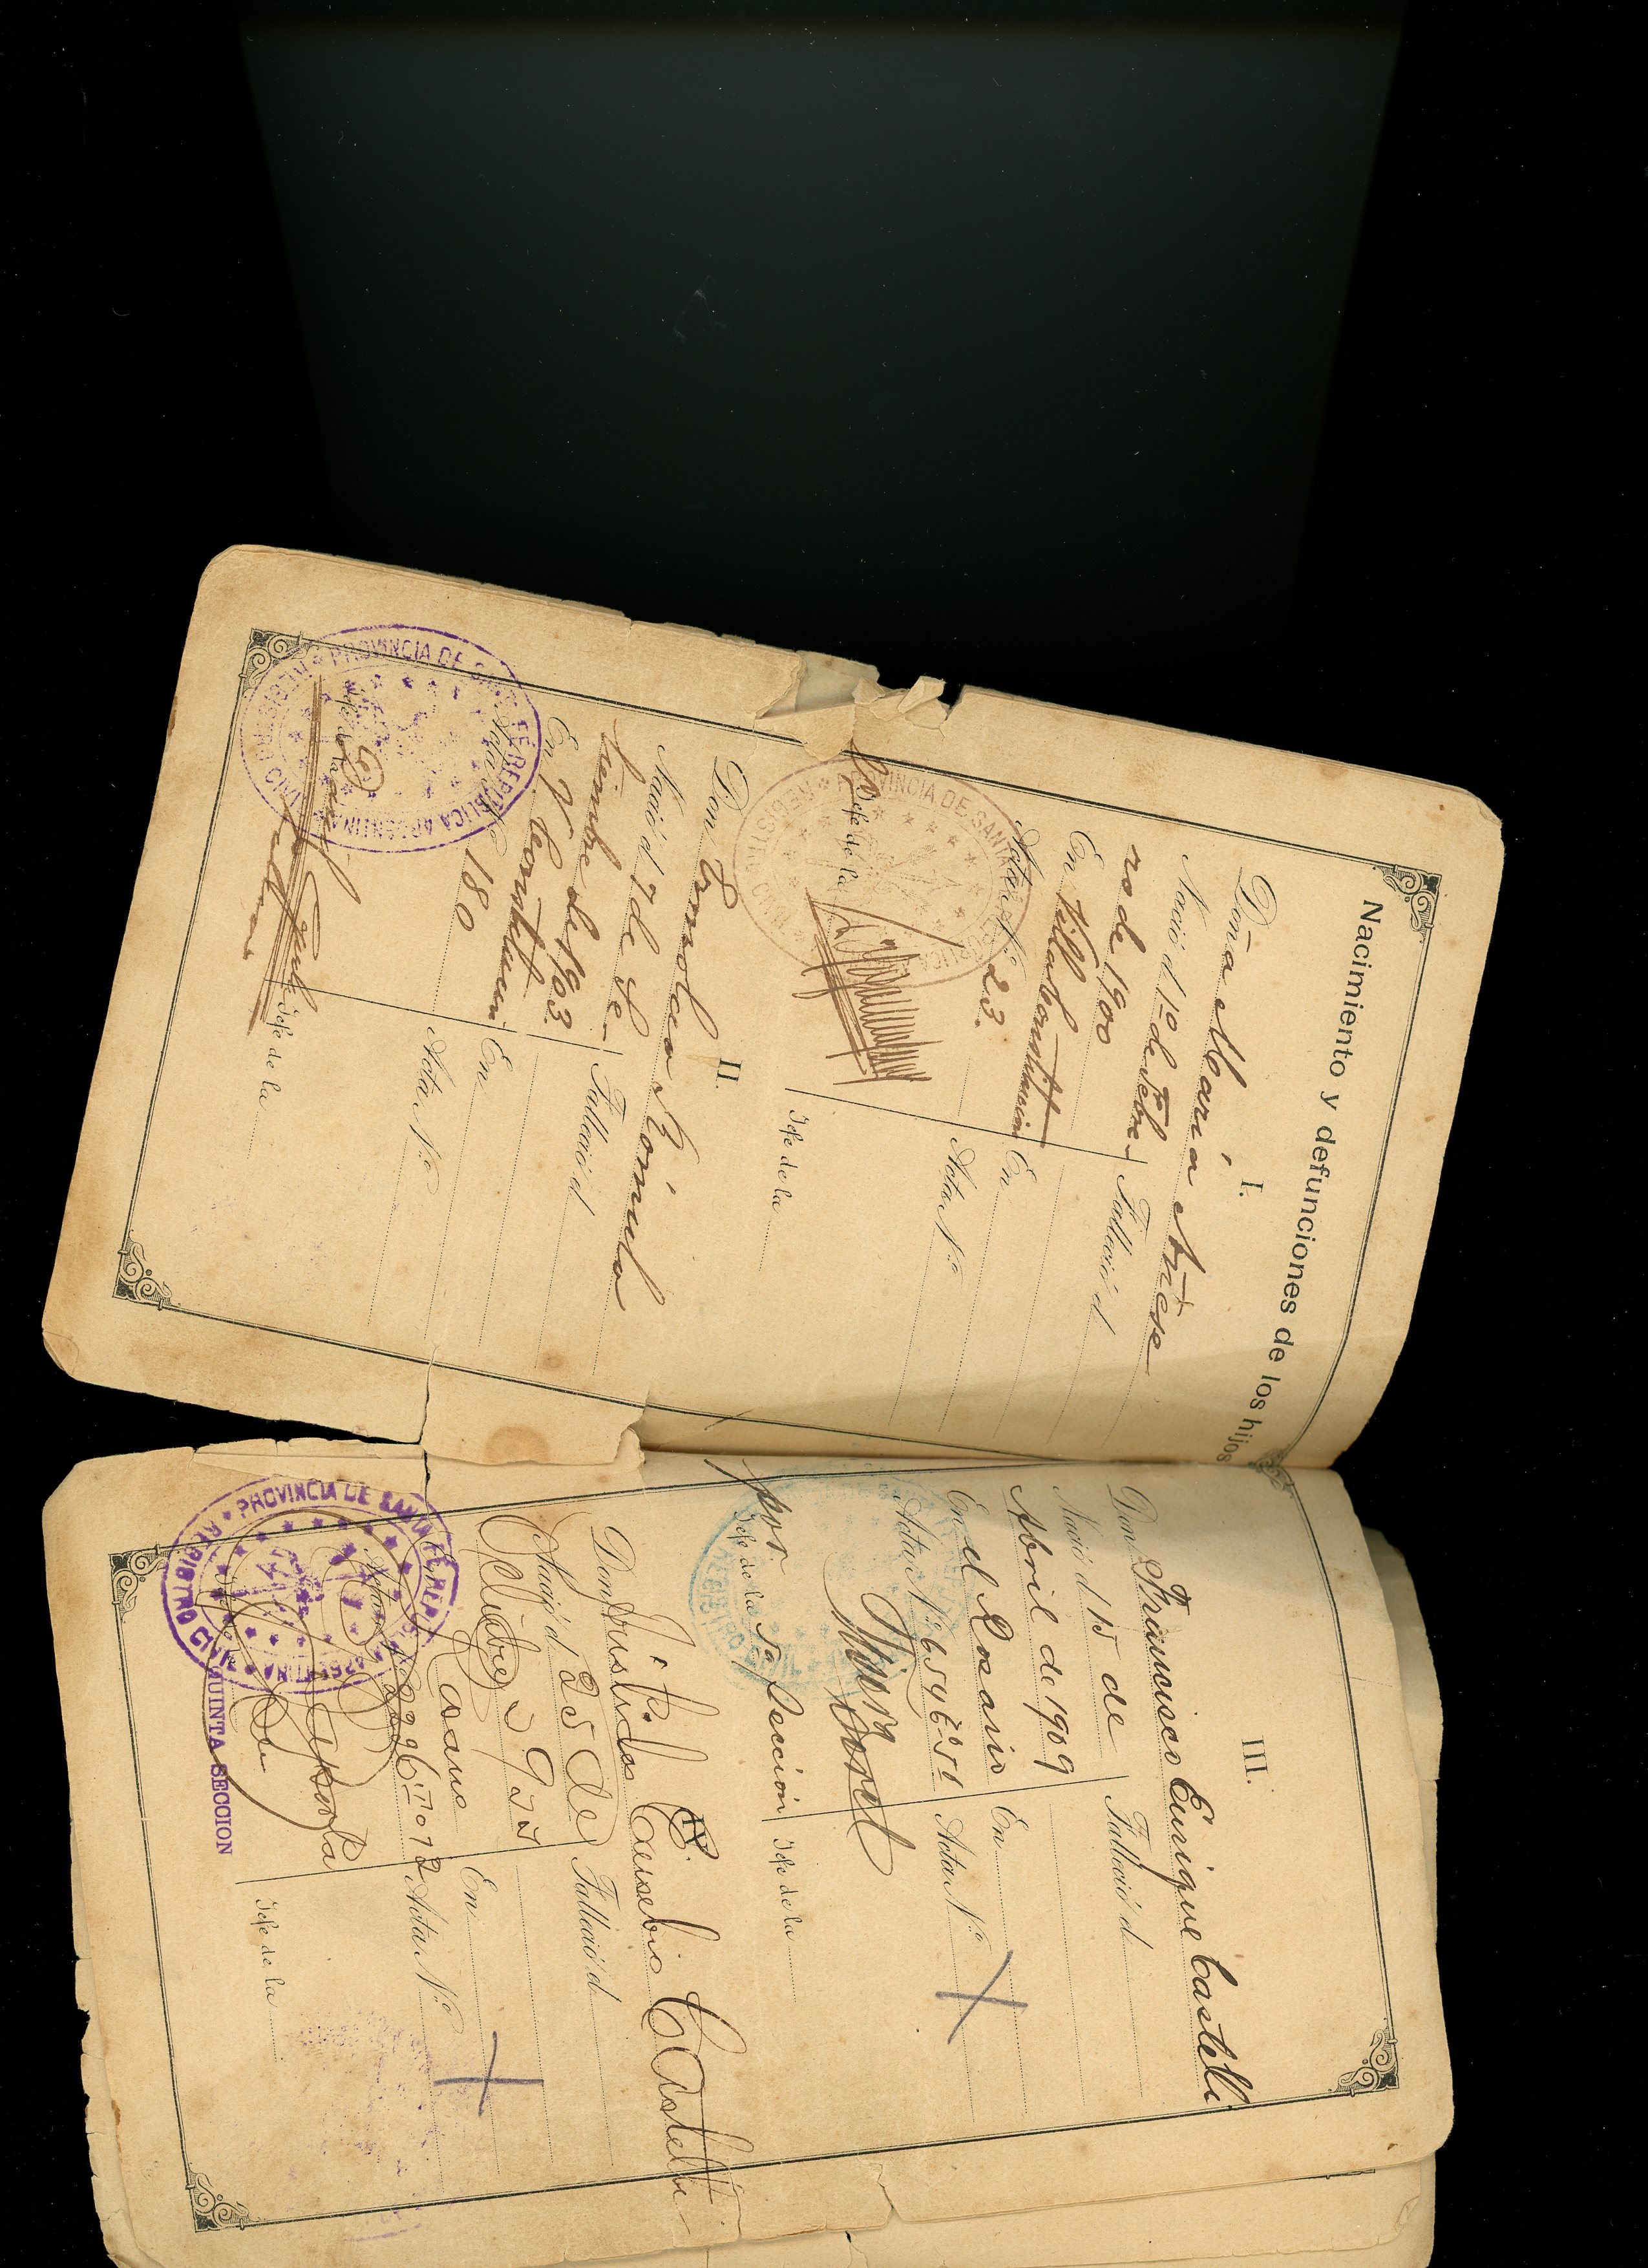 Nacimiento y defunciones de los hijos
I.
Doña María Anicesa
Nació el 1º de Febre-
ro de 1900
En Villa Constitución
Acta Nº 23.
Jefe de la
Falleció el
En
Acta N.º
Jefe de la
PROVINCIA DE SANTA FE REPÚBLICA ARGENTINA
REGISTRO CIVIL
II.
Don Rómulo
Nació el 7 de Se-
tiembre de 1903.
En V. Constitución
Acta Nº 180
Jefe de la
Falleció el
En
Acta N.º
Jefe de la
PROVINCIA DE SANTA FE REPÚBLICA ARGENTINA
REGISTRO CIVIL
III.
Don Francisco Enrique Castelli
Nació el 15 de
Abril de 1909
En el Rosario
Acta Nº
por
Jefe de la 5a Sección
Falleció el
En
Acta N.º
Jefe de la
IV.
Don Eusebio Castelli
Nació el 25 de
Octubre
En Rosario
Acta Nº
Jefe de la
Falleció el
En
Acta N.º
Jefe de la
PROVINCIA DE SANTA FE REP. ARGENTINA
REGISTRO CIVIL
QUINTA SECCION